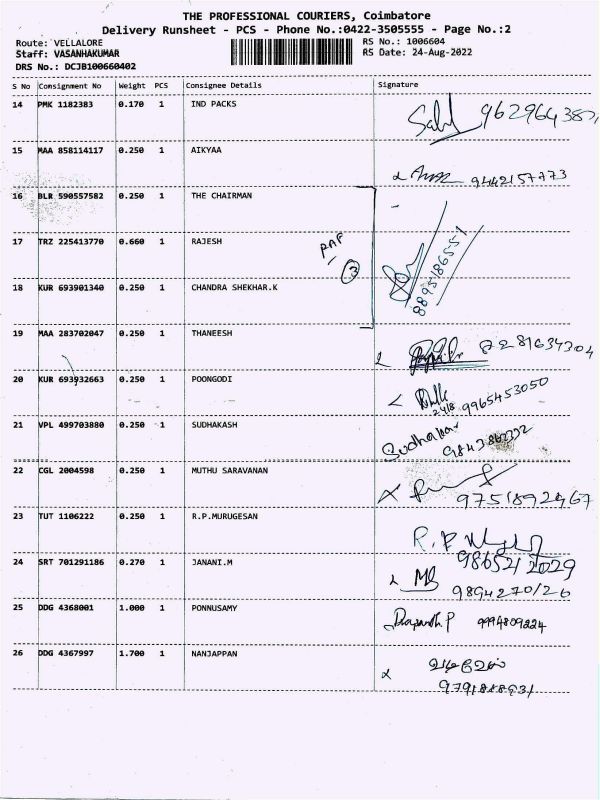 THE PROFESSIONAL COURIERS, Coimbatore
Delivery Runsheet - PCS - Phone No.:0422-3505555 - Page No.:2
Route: VELLALORE
RS No.: 1006604
Staff: VASANHAKUMAR
RS Date: 24-Aug-2022
DRS No.: DCJB100660402
S No Consignment No Weight PCS Consignee Details Signature
14 PMK 1182383 0.170 1 IND PACKS
15 MAA 858114117 0.250 1 AIKYAA
9442157773
16 BLR 590557582 0.250 1 THE CHAIRMAN
17 TRZ 225413770 0.660 1 RAJESH
3
8895186551
18 KUR 693901340 0.250 1 CHANDRA SHEKHAR.K
19 MAA 283702047 0.250 1 THANEESH
20 KUR 693932663 0.250 1 POONGODI
24/8 9965453050
21 VPL 499703880 0.250 1 SUDHAKASH
Sudhakar
22 CGL 2004598 0.250 1 MUTHU SARAVANAN
9751892467
23 TUT 1106222 0.250 1 R.P.MURUGESAN
9865212029
24 SRT 701291186 0.270 1 JANANI.M
9894270126
25 DDG 4368001 1.000 1 PONNUSAMY
9994809224
26 DDG 4367997 1.700 1 NANJAPPAN